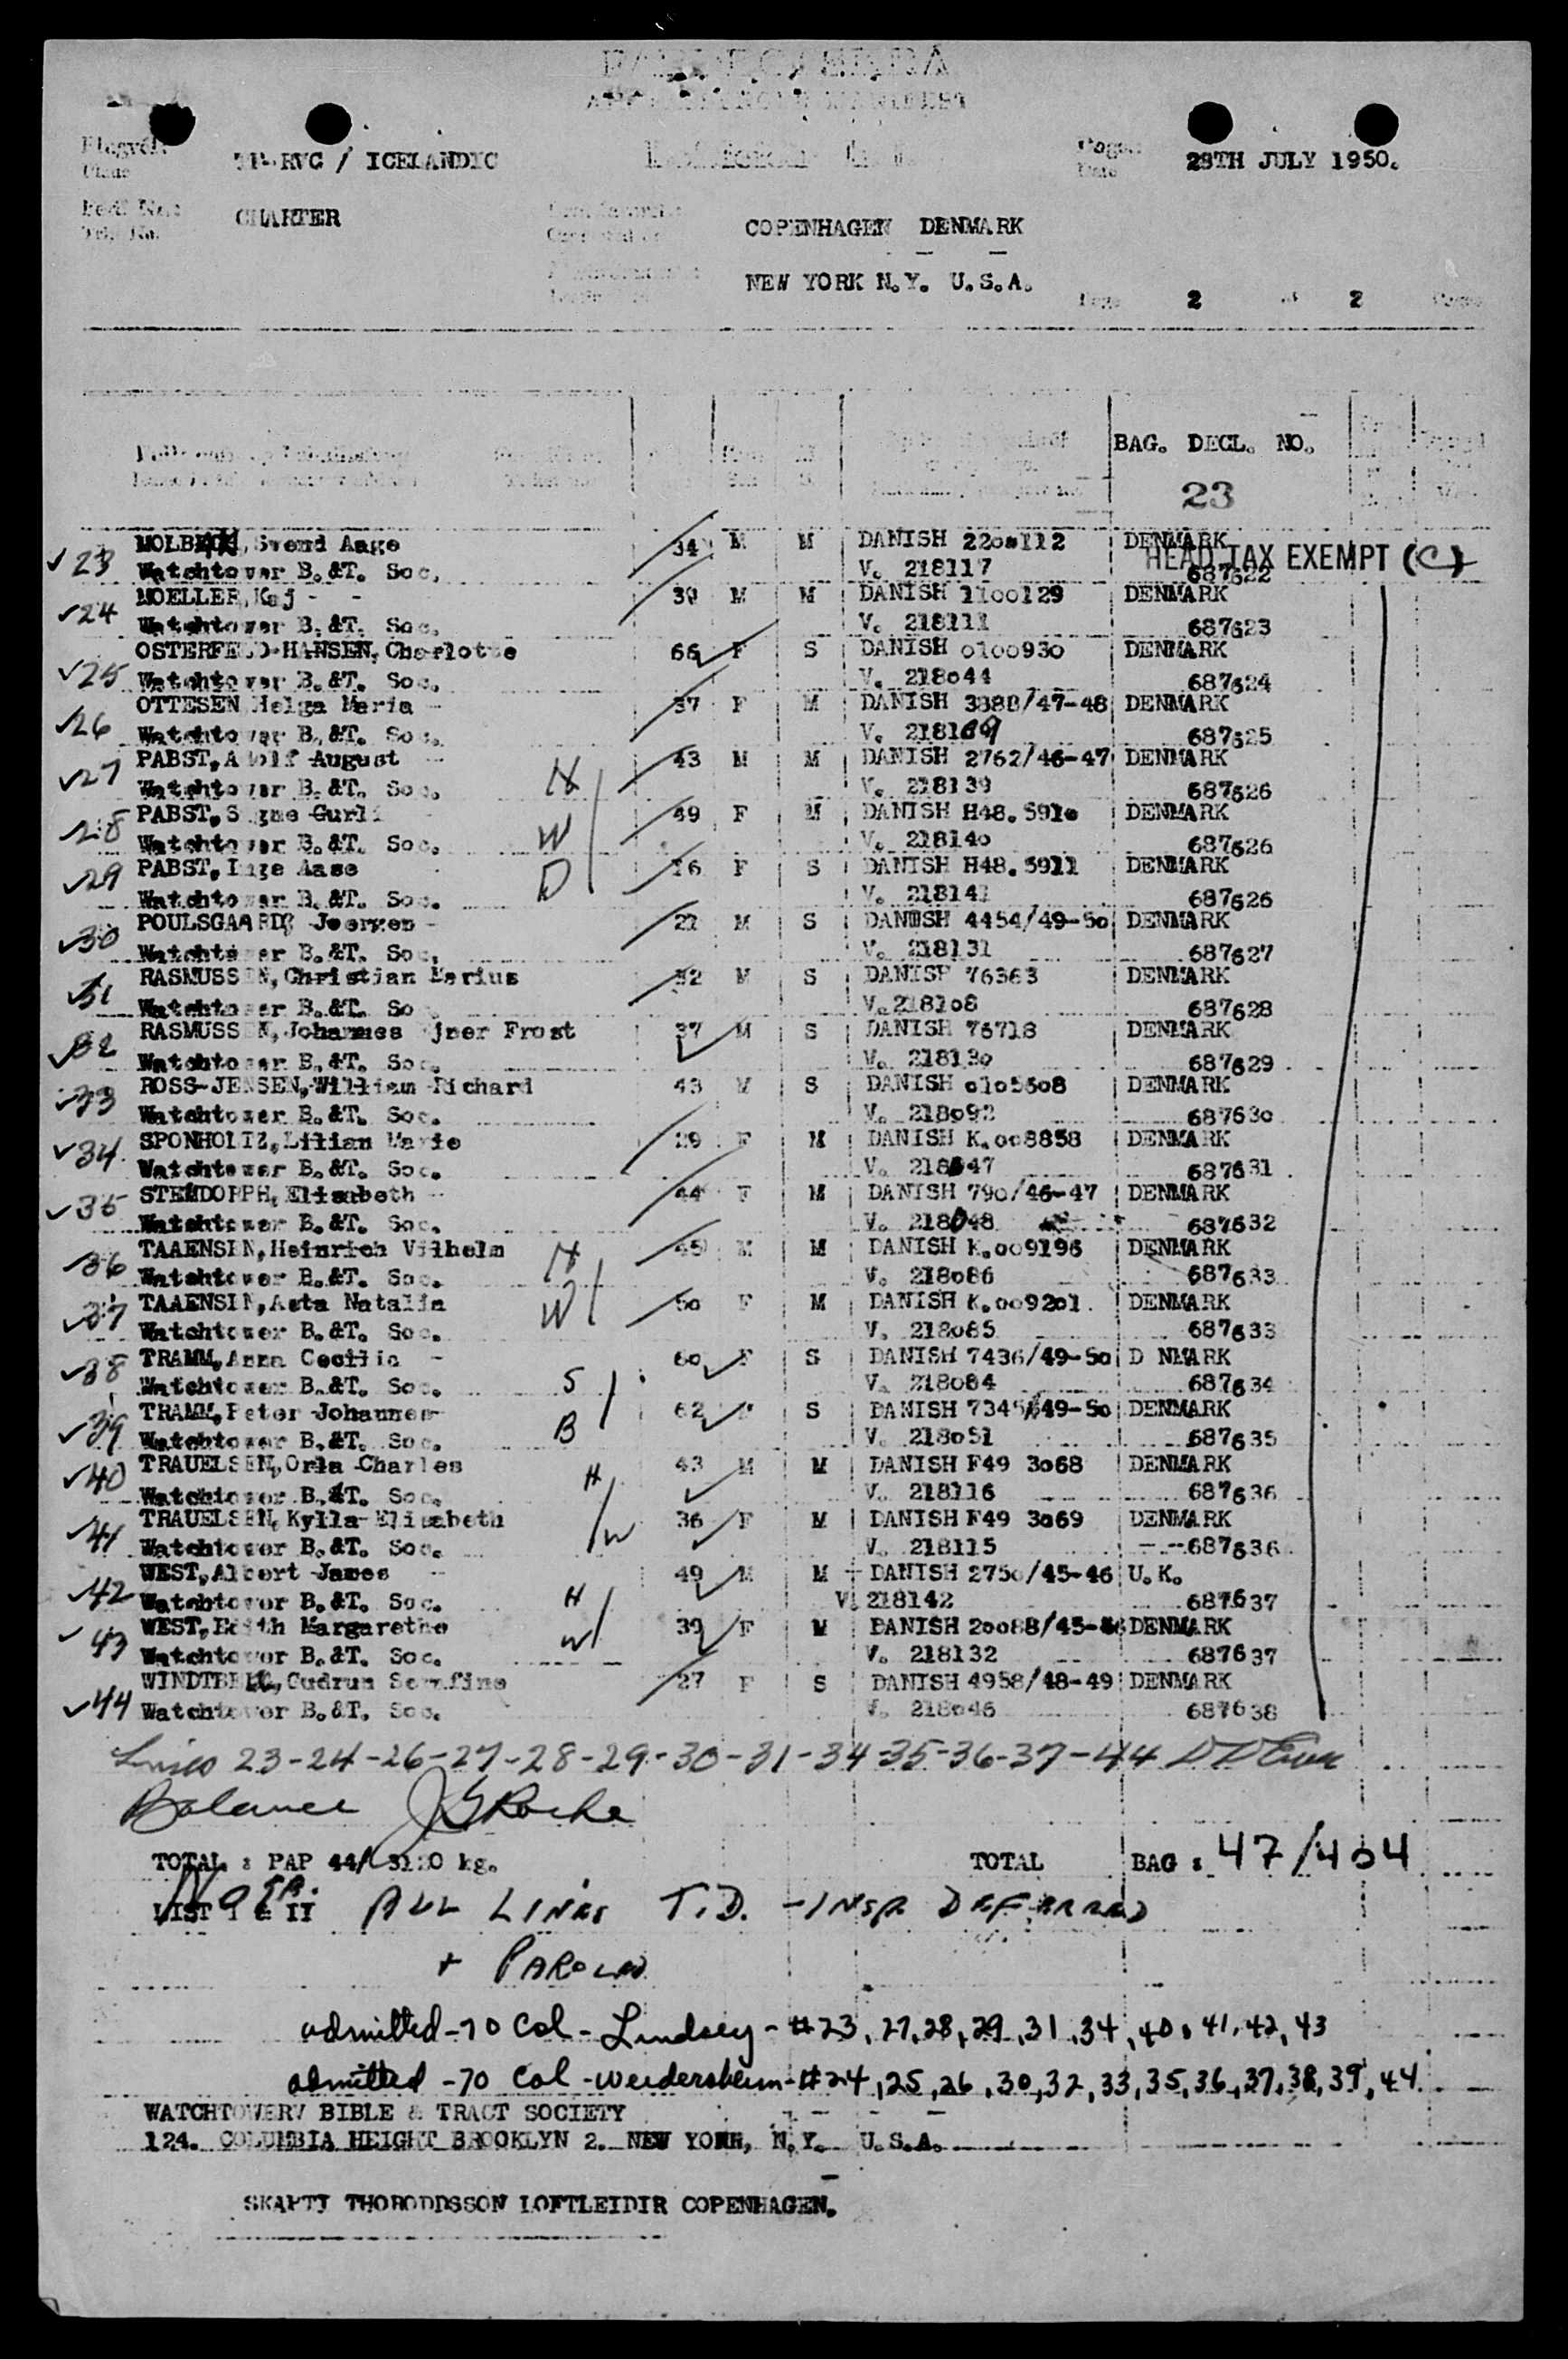 FARÞEGASKRÁ
/ ICELANDIC
Date
28TH JULY 1950.
CHARTER
COPENHAGEN DENMARK
NEW YORK N.Y. U.S.A.
2 2
BAG. DECL. NO.
23
HEAD TAX EXEMPT (C)
Svend Aage 34 M M DANISH 2200112 DENMARK
✓23 Watchtower B.&T. Soc. V. 218117 687622
MOELLER, Kaj - - 39 M M DANISH 1100129 DENMARK
✓24 Watchtower B.&T. Soc. V. 218111 687623
OSTERFELD-HANSEN, Charlotte 66 F S DANISH 0100930 DENMARK
✓25 Watchtower B.&T. Soc. V. 218044 687624
OTTESEN Helga Maria - 37 F M DANISH 3888/47-48 DENMARK
✓26 Watchtower B.&T. Soc. V. 218169 687625
PABST, Adolf August 43 M M DANISH 2762/46-47 DENMARK
✓27 Watchtower B.&T. Soc. H V. 218139 687626
PABST, Signe Gurli 49 F M DANISH H48. 5910 DENMARK
✓28 Watchtower B.&T. Soc. W V. 218140 687626
PABST, Inge Aase 16 F S DANISH H48. 5911 DENMARK
✓29 Watchtower B.&T. Soc. D V. 218141 687626
POULSGAARD, Joergen - 21 M S DANISH 4454/49-50 DENMARK
✓30 Watchtower B.&T. Soc. V. 218131 687627
RASMUSSEN, Christian Marius 32 M S DANISH 76363 DENMARK
✓31 Watchtower B.&T. So V. 218108 687628
RASMUSSEN, Johannes Ejner Frost 37 M S DANISH 76718 DENMARK
✓32 Watchtower B.&T. Soc. V. 218130 687629
ROSS-JENSEN, William Richard 43 M S DANISH 0105608 DENMARK
✓33 Watchtower B.&T. Soc. V. 218092 687630
SPONHOLTZ, Lilian Marie 29 F M DANISH K.008858 DENMARK
✓34 Watchtower B.&T. Soc. V. 687631
STENDORPH, Elisabeth - 44 F M DANISH 790/46-47 DENMARK
✓35 Watchtower B.&T. Soc. V. 218048 687632
TAAENSEN, Heinrich Vilhelm 45 M M DANISH K.009196 DENMARK
✓36 Watchtower B.&T. Soc. H V. 218086 687633
TAAENSEN, Asta Natalia 50 F M DANISH K.009201. DENMARK
✓37 Watchtower B.&T. Soc. W V. 218085 687633
TRAMM, Anna Cecilie - 60 F S DANISH 7436/49-50 D NMARK
✓38 Watchtower B.&T. Soc. S V. 218084 687634
TRAMM, Peter Johannes 62 S DANISH 7345/49-50 DENMARK
✓39 Watchtower B.&T. Soc. B V. 218051 687635
TRAUELSEN, Orla Charles 43 M M DANISH F49 3068 DENMARK
✓40 Watchtower B.&T. Soc. H V. 218116 687636
TRAUELSEN, Kylla Elisabeth 36 F M DANISH F49 3069 DENMARK
✓41 Watchtower B.&T. Soc. W V. 218115 687636
WEST, Albert James 49 M M DANISH 2750/45-46 U.K.
✓42 Watchtower B.&T. Soc. H V 218142 687637
WEST, Edith Margarethe 39 F M DANISH 20088/45-46 DENMARK
✓43 Watchtower B.&T. Soc. W V. 218132 687637
Gudrun Serafine 27 F S DANISH 4958/48-49 DENMARK
✓44 Watchtower B.&T. Soc. V. 218046 687638
Lines 23-24-26-27-28-29-30-31-34-35-36-37-44
Balance J G Roche
TOTAL : PAP 44/ 3120 kg. TOTAL BAG : 47/404
LIST I & II ALL LINES T.D. - INSP. DEFERRED
+ PAROLED
admitted -70 Col - Lindsey - #23, 27, 28, 29, 31, 34, 40, 41, 42, 43
admitted -70 Col - Weidersheim - #24, 25, 26, 30, 32, 33, 35, 36, 37, 38, 39, 44
WATCHTOWERV BIBLE & TRACT SOCIETY
124. COLUMBIA HEIGHT BROOKLYN 2. NEW YORK, N.Y. U.S.A.
SKAPTI THORODDSSON LOFTLEIDIR COPENHAGEN.